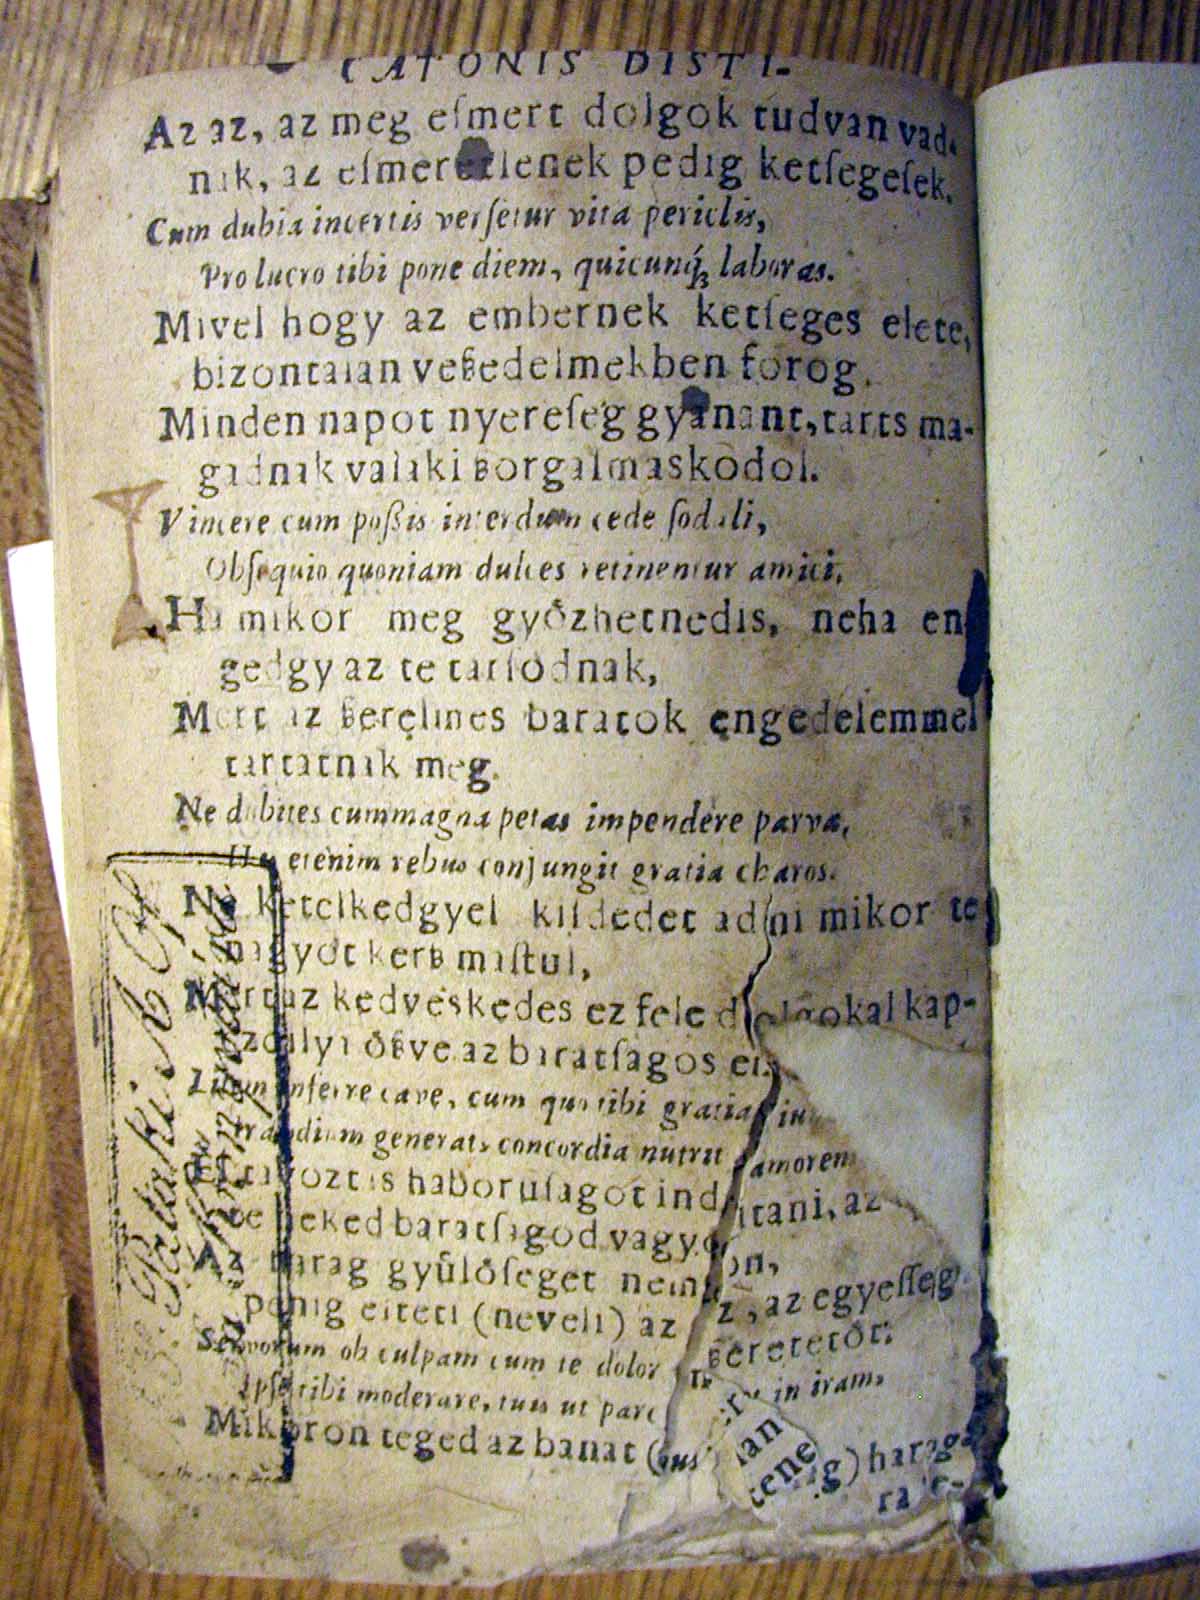 CATONIS DISTI-
Az az, az meg eſmert dolgok tudvan vad-
nak, az eſmeretlenek pedig ketſegeſek.
Cum dubia incertis verſetur vita periclis,
Pro lucro tibi pone diem, quicunq́ꝫ laboras.
Mivel hogy az embernek ketſeges elete,
bizontalan veßedelmekben forog.
Minden napot nyereſeg gyanant, tarts ma-
gadnak valaki ßorgalmaskodol.
Vincere cum poßis interdum cede ſodali,
Obſequio quoniam dulces retinentur amici,
Ha mikor meg győzhetnedis, neha en
gedgy az te tarſodnak,
Mert az ßerelmes baratok engedelemmel
tartatnak meg.
Ne dubites cum magna petas impendere parva,
His etenim rebus conjungit gratia charos.
Ne ketelkedgyel kiſdedet adni mikor te
nagyot kerß maſtul,
Mert az kedveskedes ez fele dolgokal kap-
zollya őßve az baratſagos
Litem inferre cave, cum quo tibi gratia
generat, concordia nutrit amorem
Tavoztas haboruſagot inditani, az
neked baratſagod vagyon,
Az harag gyűlőſeget nemz, az egyeſſeg
penig elteti (neveli) az ßeretetőt:
Servorum ob culpam cum te dolor in iram,
Ipſe tibi moderare, tuis ut
Mikoron teged az banat harag-
Pataki